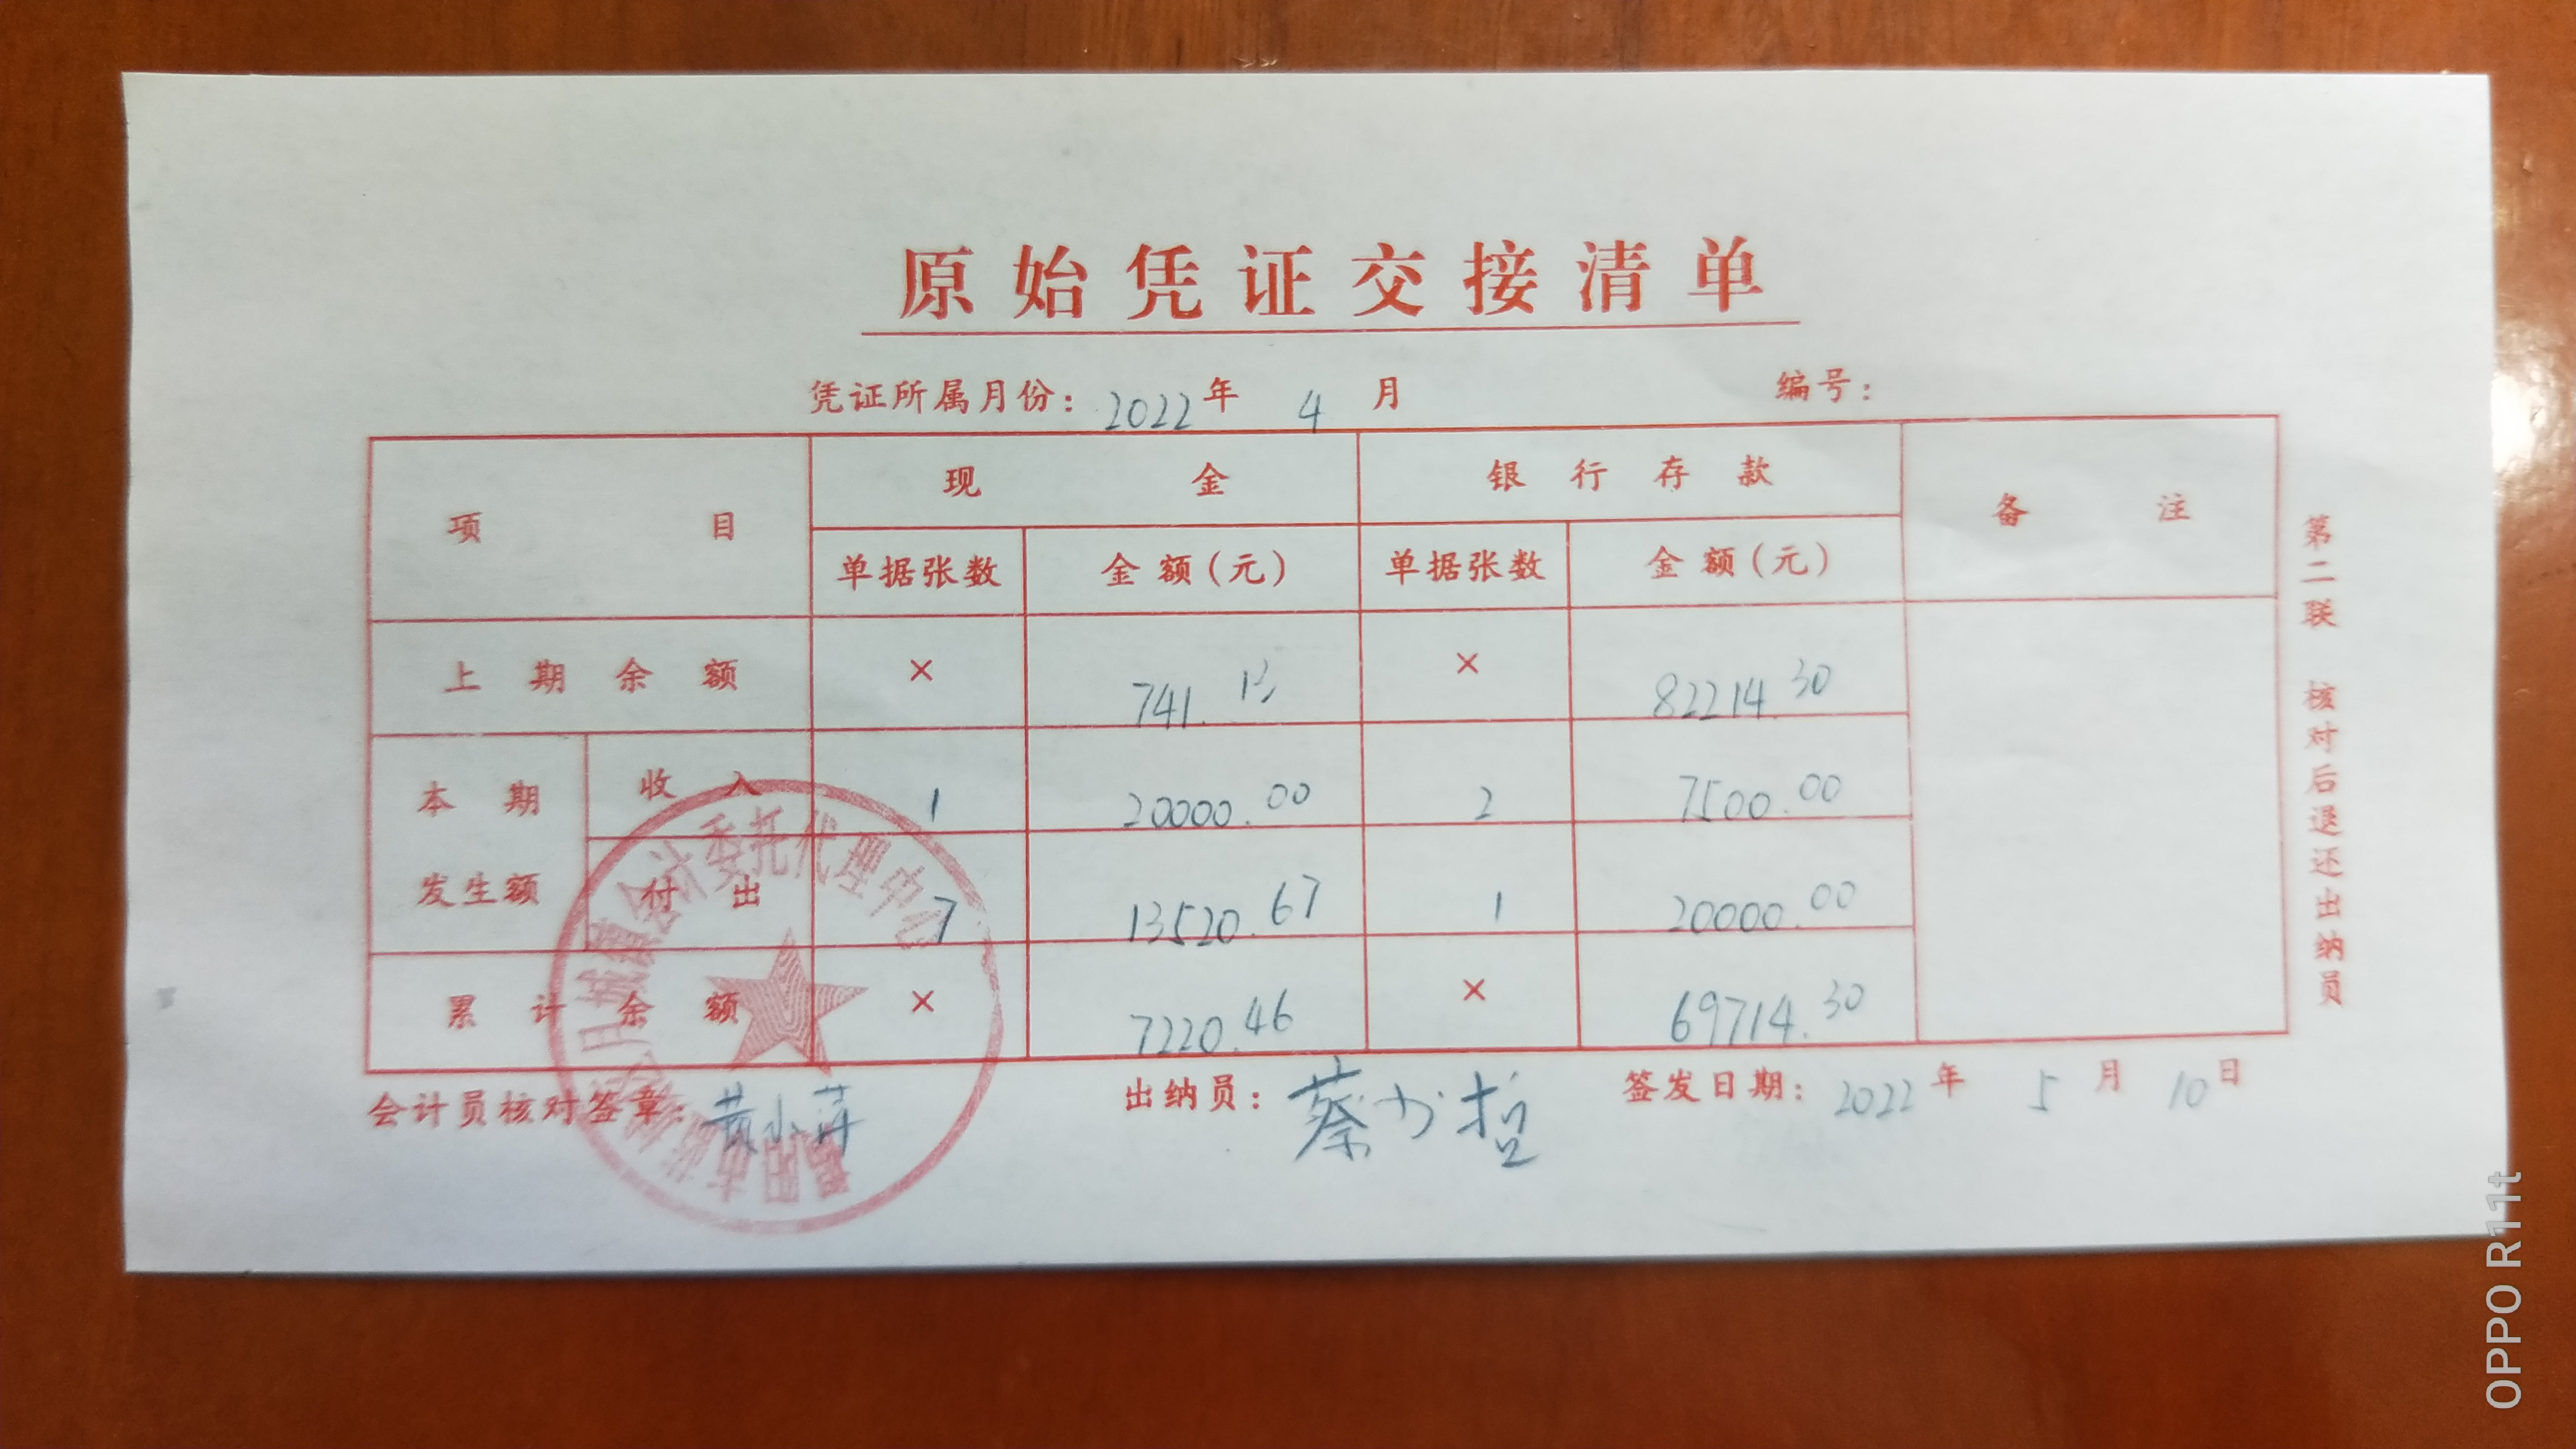 原始凭证交接清单
凭证所属月份: 2022年 4 月 编号:
项目 现金 银行存款 备注
单据张数 金额(元) 单据张数 金额(元)
上期余额 × 741.13 × 82214.30
本期发生额 收入 1 20000.00 2 7500.00
付出 7 13520.67 1 20000.00
累计余额 × 7220.46 × 69714.30
会计员核对签章: 黄小萍 出纳员: 签发日期: 2022年 5月 10日
第二联 核对后退还出纳员
会计委托代理中心
OPPO R11t